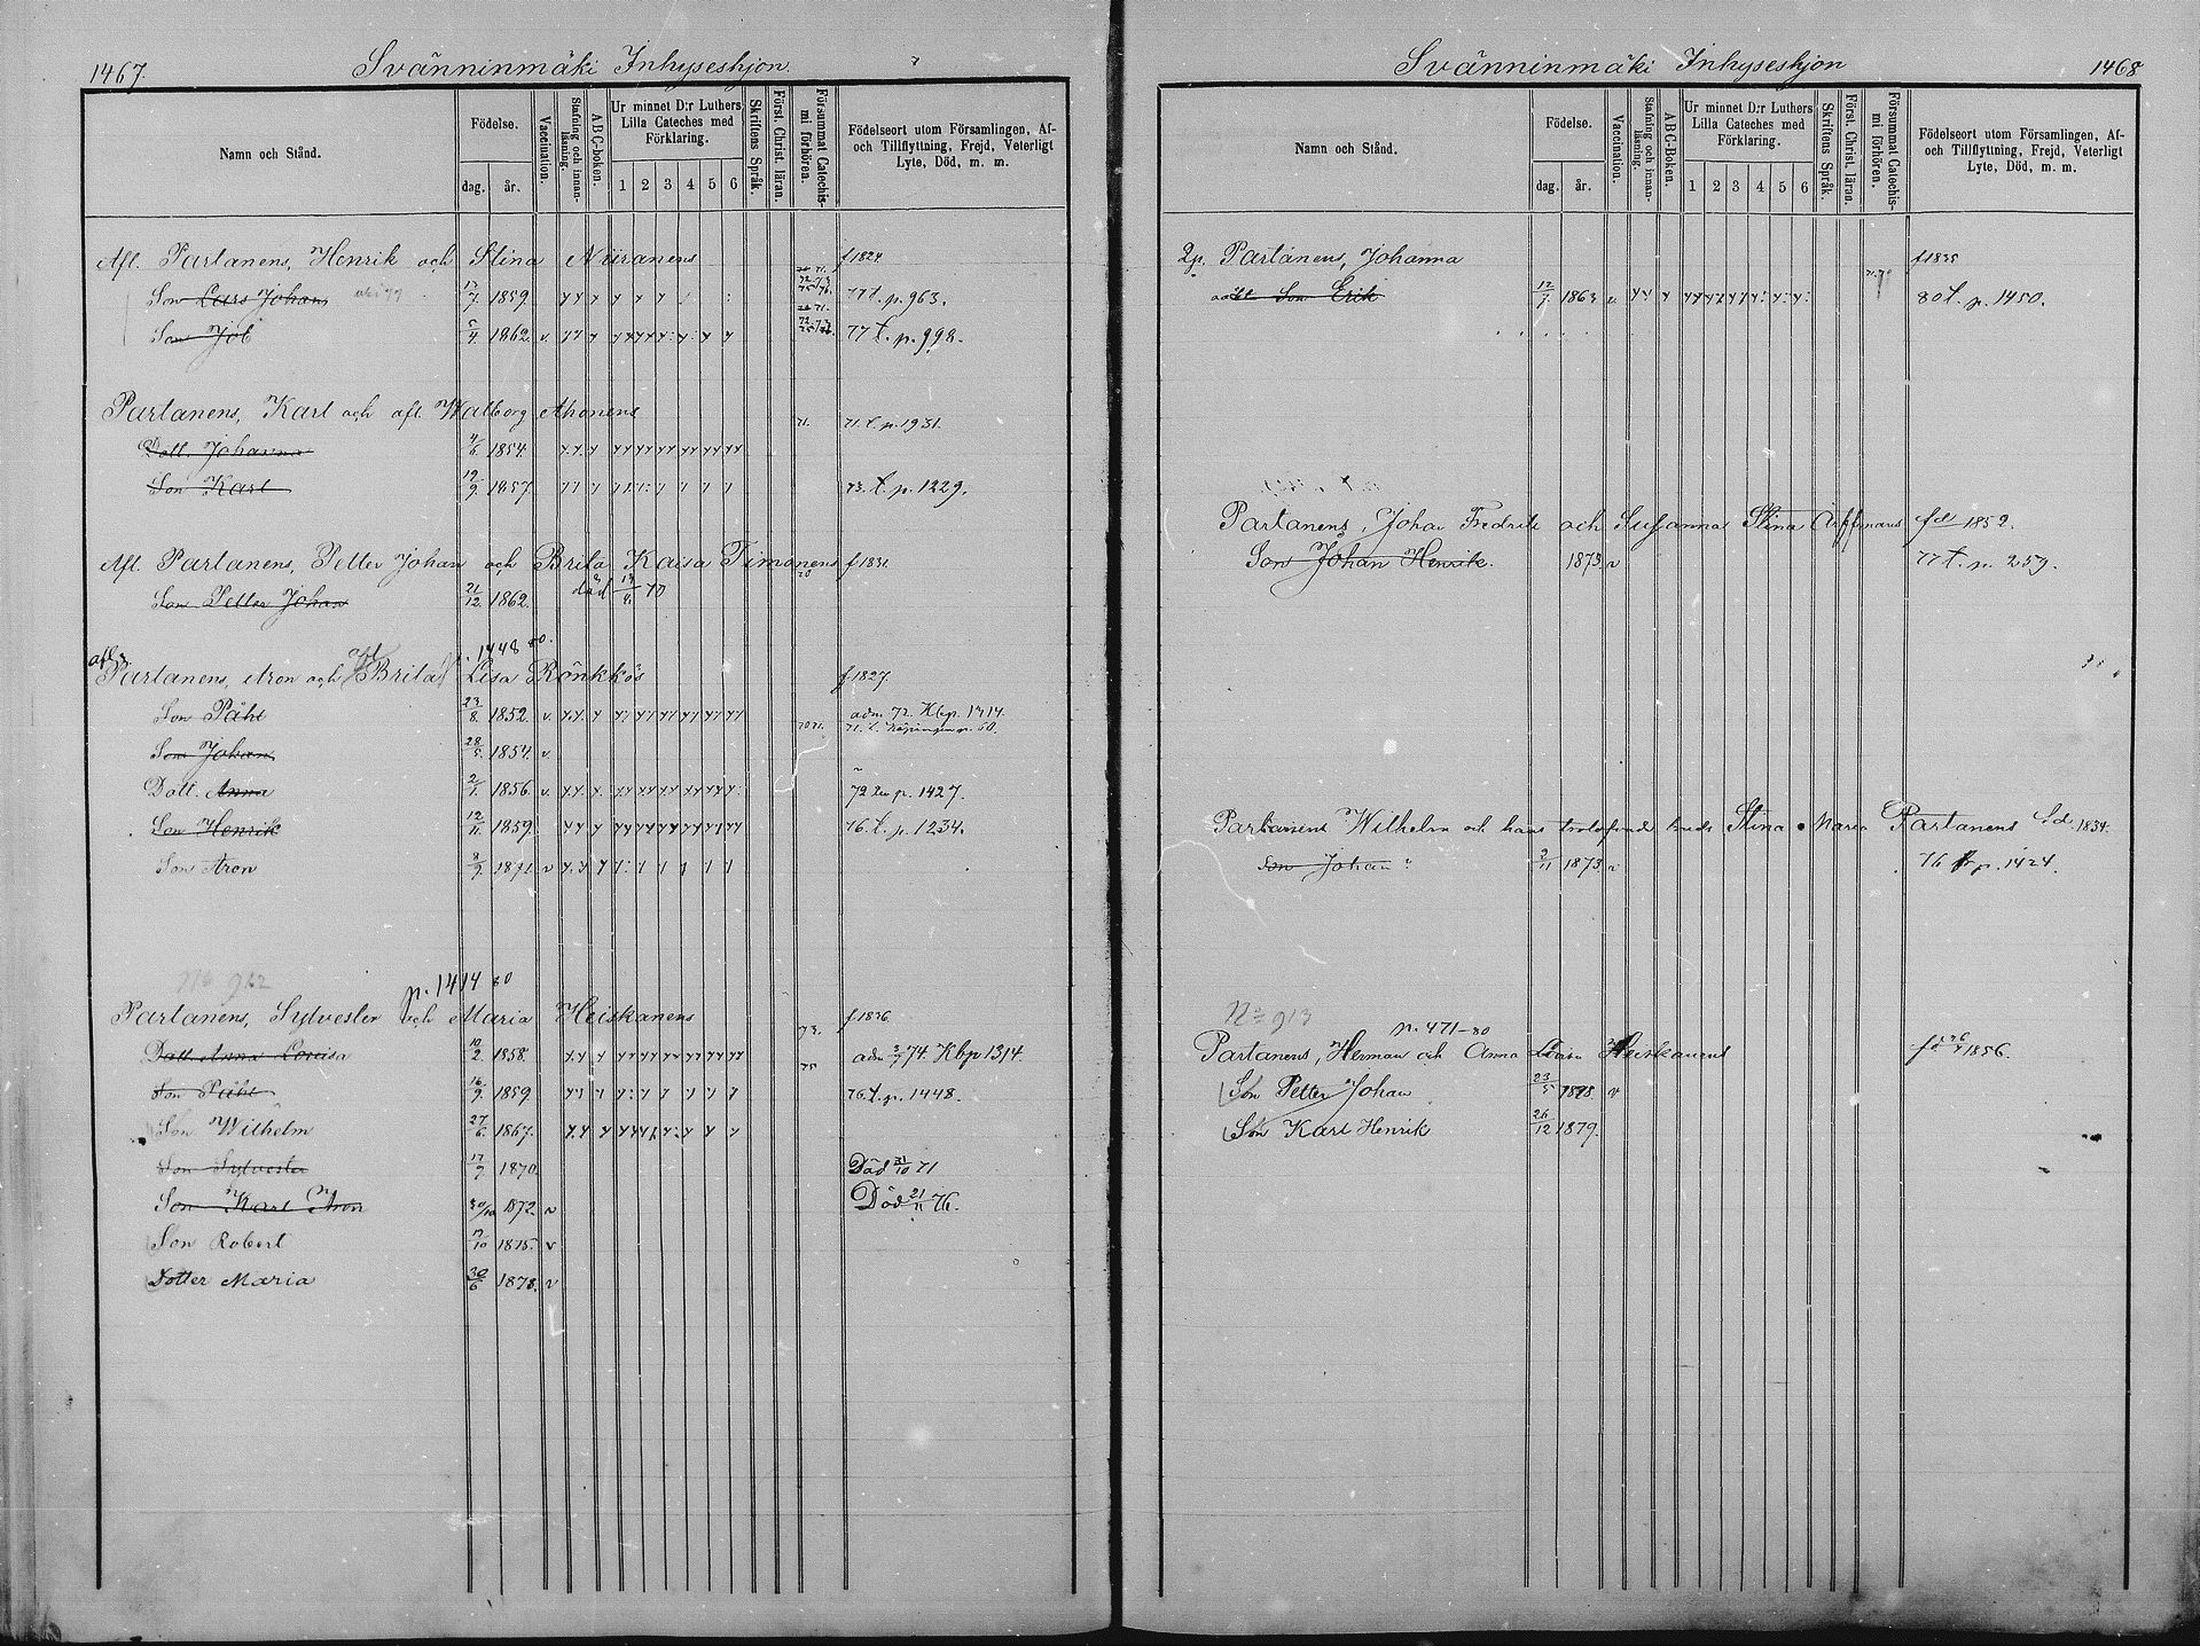 1467.
Svänninmäki Inhyseshjon.
Namn och Stånd.
Födelse.
dag. år.
Vaccination.
Stafning och innan-läsning.
ABC-boken.
Ur minnet D:r Luthers Lilla Cateches med Förklaring.
1 2 3 4 5 6
Skriftens Språk.
Först. Christ. läran.
Försummat Catechis-mi förhören.
Födelseort utom Församlingen, Af- och Tillflyttning, Frejd, Veterligt Lyte, Död, m. m.
Afl. Partanens, Henrik och Stina Niiranens f 1824.
Son Lars Johan 1859. 77 t. p. 963.
Son Job 5/4 1862. v. 77 t. p. 998.
Partanens, Karl och afl. Walborg Ahonens
71. 71. t. p. 1931.
Dott. Johanna 4/6 1854.
Son Karl 19/9 1857. 73. t. p. 1229.
Afl. Partanens, Petter Johan och Brita Kaisa Timonens f 1831.
Son Petter Johan 21/12 1862. död 70
p. 1448 80.
afl. Partanens, Aron och afl Brita Lisa Rönkkös f 1827.
Son Påhl 23/8 1852. v. adm. 72. Kbp. 1414.
71. t. Köpingen p. 60.
Son Johan 28/5 1854. v.
Dott. Anna 2/1 1856. v. 72 p. 1427.
Son Henrik 12/11 1859. 76. t. p. 1234.
Son Aron 8/9 1871 v
No 912
p. 1414 80
Partanens, Sylvester och Maria Heiskanens f 1836.
73.
Dott. Anna Lovisa 10/2 1858. adm 74 Kbp 1314.
75
Son Påhl 16/9 1859 76. t. p. 1448.
Son Wilhelm 27/6 1867.
Son Sylvester 17/7 1870. Död 31/10 71
Son Karl Aron 30/10 1872. v Död 21/11 76.
Son Robert 1875. v
Dotter Maria 30/6 1878. v
Svänninmäki Inhyseshjon
1468
Namn och Stånd.
Födelse.
dag. år.
Vaccination.
Stafning och innan-läsning.
ABC-Boken.
Ur minnet D:r Luthers Lilla Cateches med Förklaring.
1 2 3 4 5 6
Skriftens Språk.
Först. Christ. läran.
Försummat Catechis-mi förhören.
Födelseort utom Församlingen, Af- och Tillflyttning, Frejd, Veterligt Lyte, Död, m. m.
2p. Partanens, Johanna f 1835
Son Erik 12/7 1863 v. 80 t. p. 1450.
Partanens, Johan Fredrik och Susanna Stina Årffmans fd 1852.
Son Johan Henrik. 1873. v 77 t. p. 259.
Partanens Wilhelm och hans trolofvade brud Stina Maria Partanens fd. 1834.
Son Johan 3/11 1873. v 76 p. 1424.
No 913
p. 471-80
Partanens, Herman och Anna Lovisa Heiskanens fd 1856.
Son Petter Johan 23/5 1878. v
Son Karl Henrik 26/12 1879.